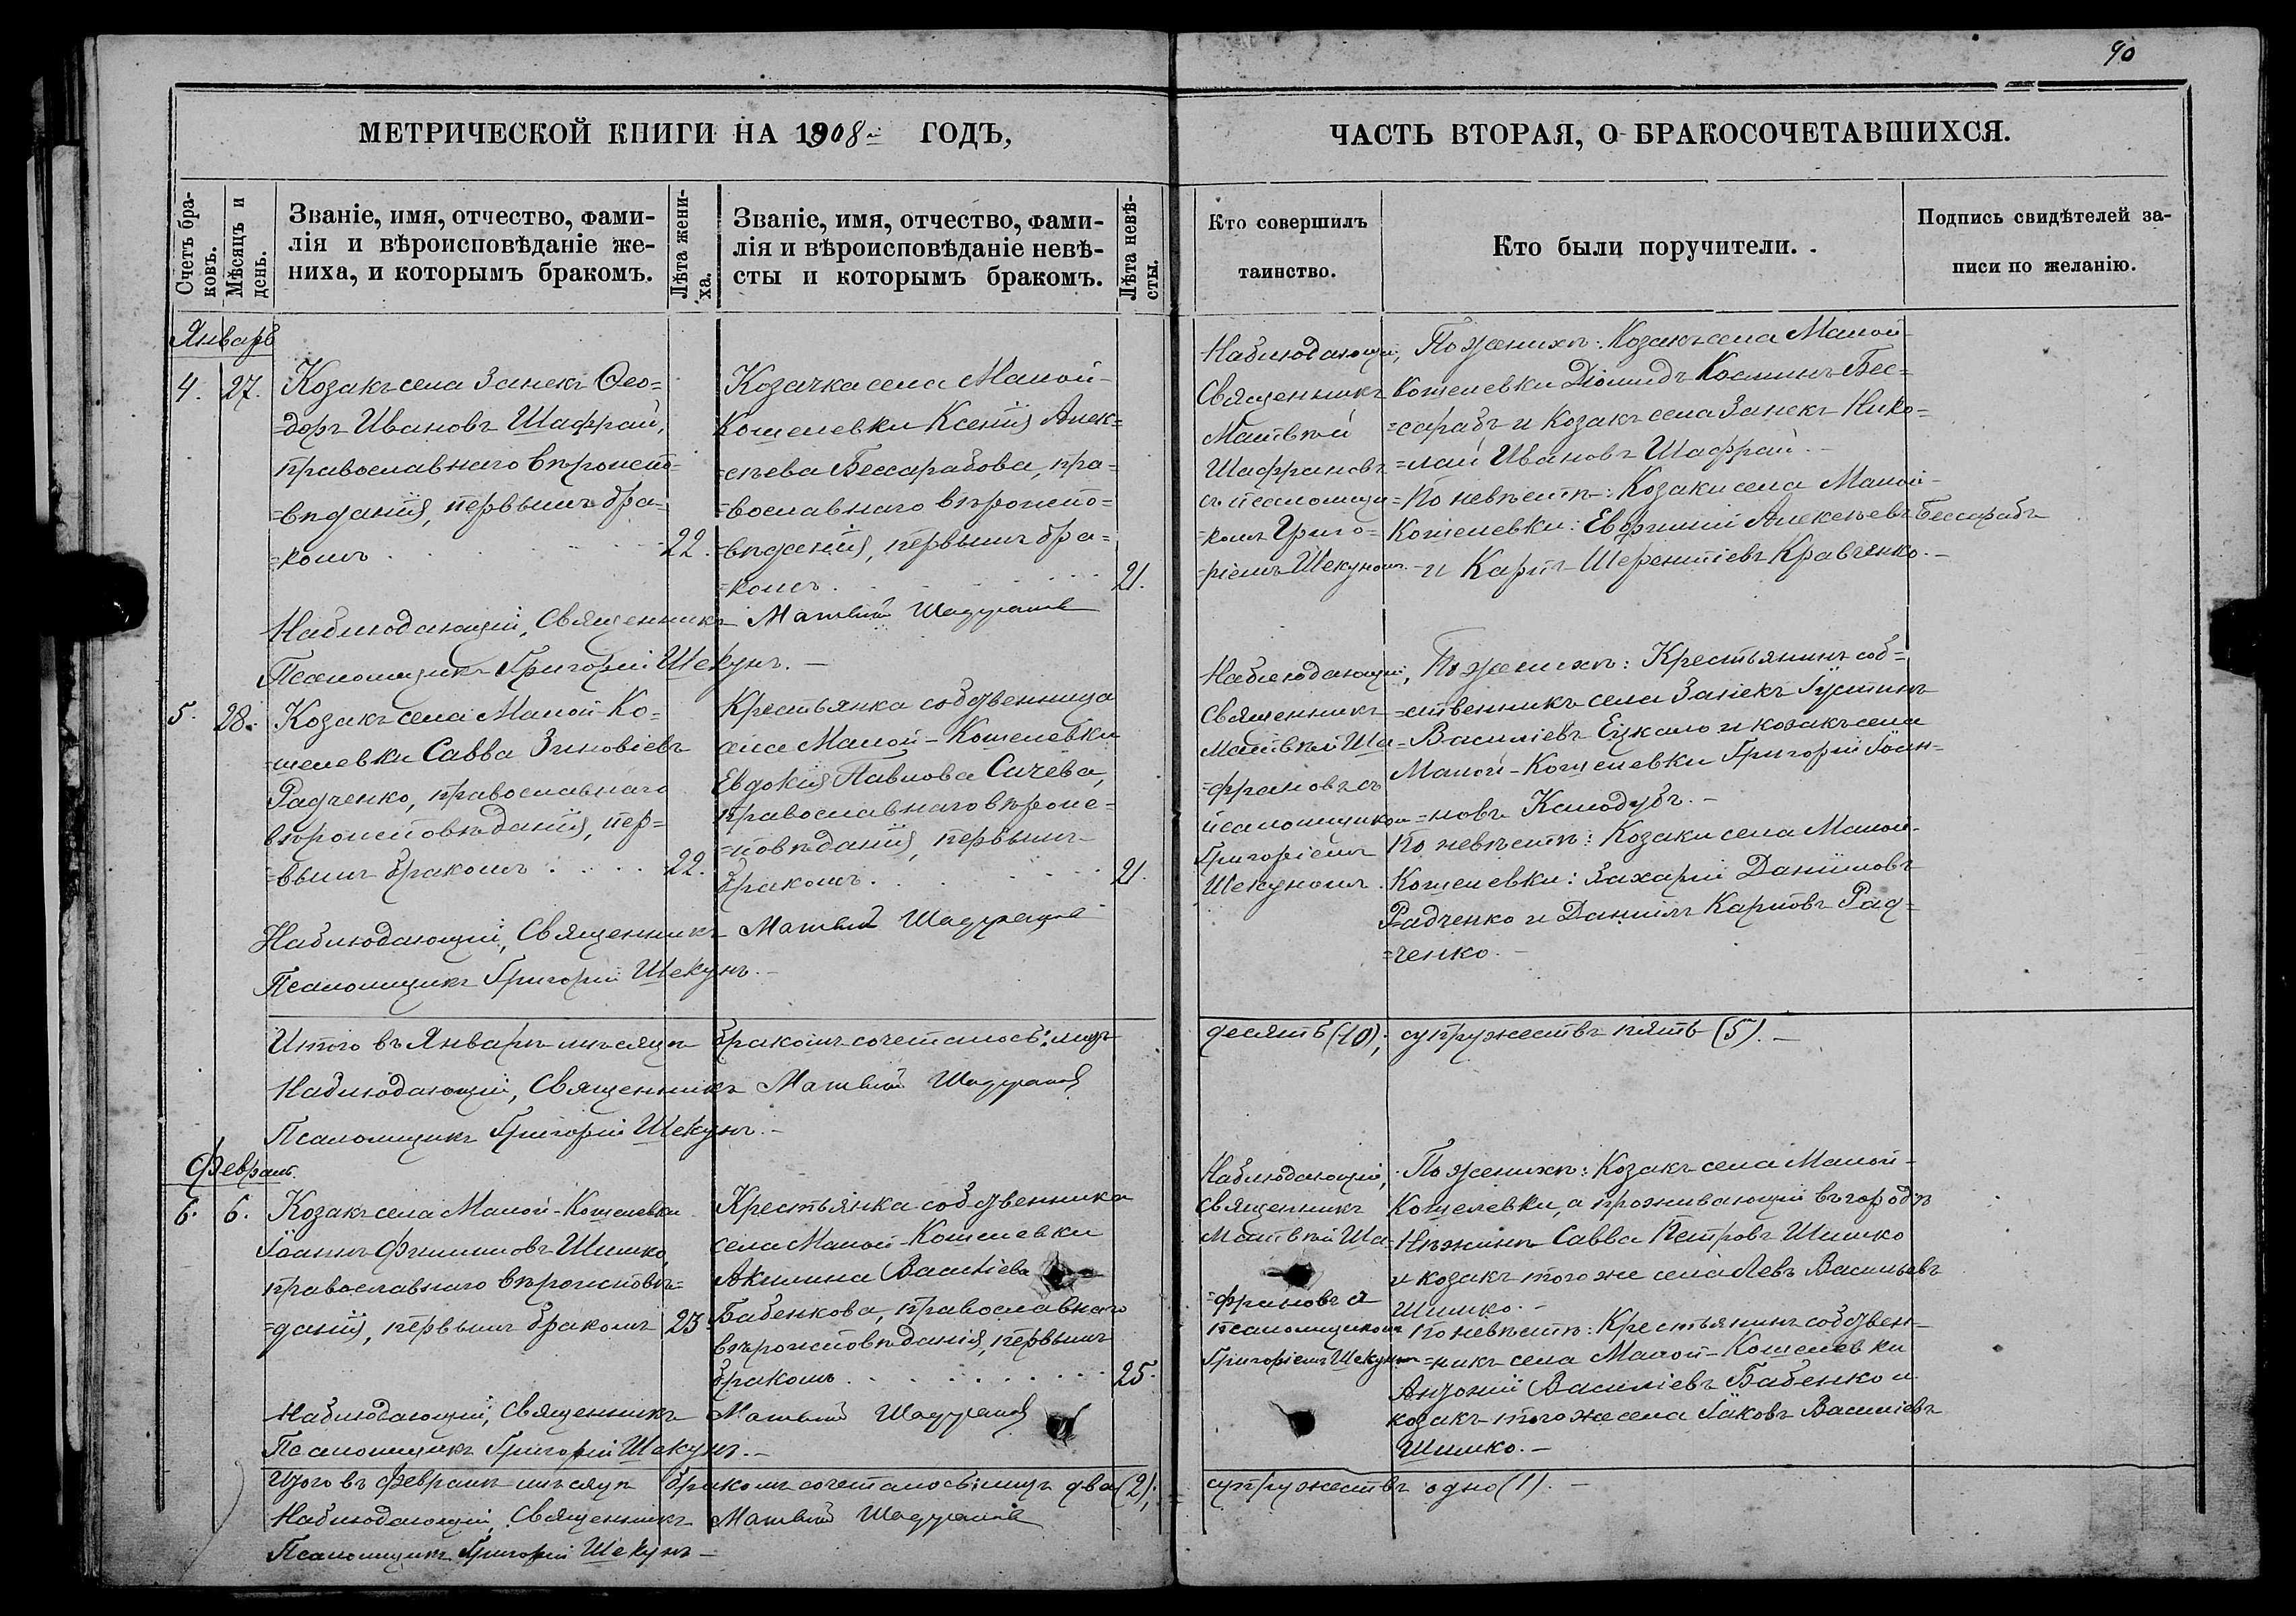 90
МЕТРИЧЕСКОЙ КНИГИ НА 1908й ГОДЪ,
ЧАСТЬ ВТОРАЯ, О БРАКОСОЧЕТАВШИХСЯ.
Счетъ бра-
ковъ.
Мѣсяцъ и
день.
Званіе, имя, отчество, фами-
лія и вѣроисповѣданіе же-
ниха, и которымъ бракомъ.
Лѣта жени-
ха.
Званіе, имя, отчество, фами-
лія и вѣроисповѣданіе невѣ-
сты и которымъ бракомъ.
Лѣта невѣ-
сты.
Кто совершилъ
таинство.
Кто были поручители.
Подпись свидѣтелей за-
писи по желанію.
Январь
4. 27.
Козакъ села Занекъ Ѳео=
=доръ Ивановъ Шафрай,
православнаго вѣроиспо-
=вѣданія, первымъ бра-
=комъ 22.
Козачка села Малой-
Кошелевки Ксенія Алек=
=сѣева Бессарабова, пра=
=вославнаго вѣроиспо=
=вѣданія, первымъ бра=
=комъ. 21.
Наблюдающій,
Священникъ
Матвѣй
Шафрановъ
съ псаломщи=
=комъ Григо=
=ріемъ Шекуномъ.
По женихѣ: Козакъ села Малой-
Кошелевки Діомидъ Косминъ Бес=
=сарабъ и Козакъ села Занекъ Нико=
=лай Ивановъ Шафрай.-
По невѣстѣ: Козаки села Малой-
Кошелевки: Евфимій Алексѣевъ Бессарабъ
и Карпъ Терентіевъ Кравченко.-
Наблюдающій, Священникъ Матвѣй Шафрановъ
Псаломщикъ Григорій Шекунъ.-
5. 28.
Козакъ села Малой-Ко=
=шелевки Савва Зиновіевъ
Радченко, православнаго
вѣроисповѣданія, пер=
=вымъ бракомъ 22.
Крестьянка собственница
села Малой-Кошелевки
Евдокія Павлова Сичева,
православнаго вѣроис=
=повѣданія, первымъ
бракомъ. 21.
Наблюдающій,
Священникъ
Матвѣй Ша=
=франовъ съ
псаломщикомъ
Григоріемъ
Шекуномъ.
По женихѣ: Крестьянинъ соб=
=ственникъ села Занекъ Іустинъ
Василіевъ Ецкало и козакъ села
Малой-Кошелевки Григорій Іоан=
=новъ Колодубъ.-
По невѣстѣ: Козаки села Малой-
Кошелевки: Захарій Даніиловъ
Радченко и Даніилъ Карповъ Рад=
=ченко.-
Наблюдающій, Священникъ Матвѣй Шафрановъ
Псаломщикъ Григорій Шекунъ.-
Итого въ Январѣ мѣсяцѣ бракомъ сочеталось: лицъ десять (10); супружествъ пять (5).-
Наблюдающій, Священникъ Матвѣй Шафрановъ
Псаломщикъ Григорій Шекунъ.-
Февраль.
6. 6.
Козакъ села Малой-Кошелевки
Іоаннъ Филипповъ Шишко,
православнаго вѣроисповѣ=
=данія, первымъ бракомъ 23
Крестьянка собственника
села Малой-Кошелевки
Акилина Василіева
Бабенкова, православнаго
вѣроисповѣданія, первымъ
бракомъ. 25.
Наблюдающій,
Священникъ
Матвѣй Ша=
=франовъ съ
псаломщикомъ
Григоріемъ Шекуномъ
По женихѣ: Козакъ села Малой-
Кошелевки, а проживающій въ городѣ
Нѣжинѣ Савва Петровъ Шишко
и козакъ того же села Левъ Васильевъ
Шишко.-
По невѣстѣ: Крестьянинъ собствен-
=никъ села Малой-Кошелевки
Антоній Василіевъ Бабенко и
козакъ того же села Іаковъ Василіевъ
Шишко.-
Наблюдающій, Священникъ Матвѣй Шафрановъ
Псаломщикъ Григорій Шекунъ.-
Итого въ Февралѣ мѣсяцѣ бракомъ сочеталось: лицъ два (2); супружествъ одно (1).-
Наблюдающій, Священникъ Матвѣй Шафрановъ
Псаломщикъ Григорій Шекунъ-